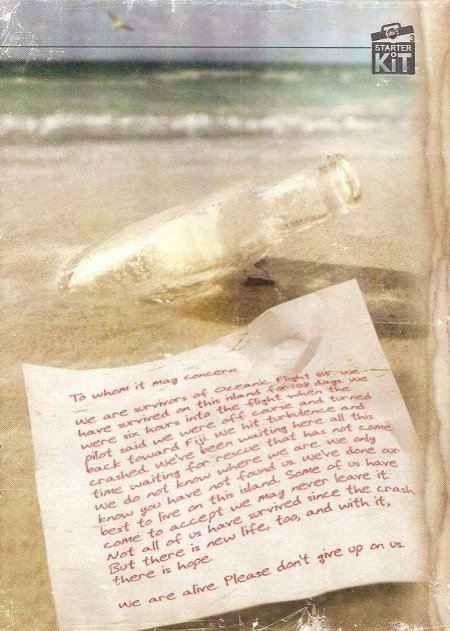 3
STARTER
KiT
To whom it may concern
We are survivors of Oceanic Flight 815. We
have survived on this island for 108 days. We
were six hours into the flight when the
pilot said we were off corse and turned
back toward Fiji. We hit turbulence and
crashed. We've been waiting here all this
time waiting for rescue that has not come.
We do not know where we are. We only
know you have not found us. We've done our
best to live on this island. Some of us have
come to accept we may never leave it.
Not all of us have survived since the crash.
But there is new life, too, and with it,
there is hope.
We are alive. Please don't give up on us.